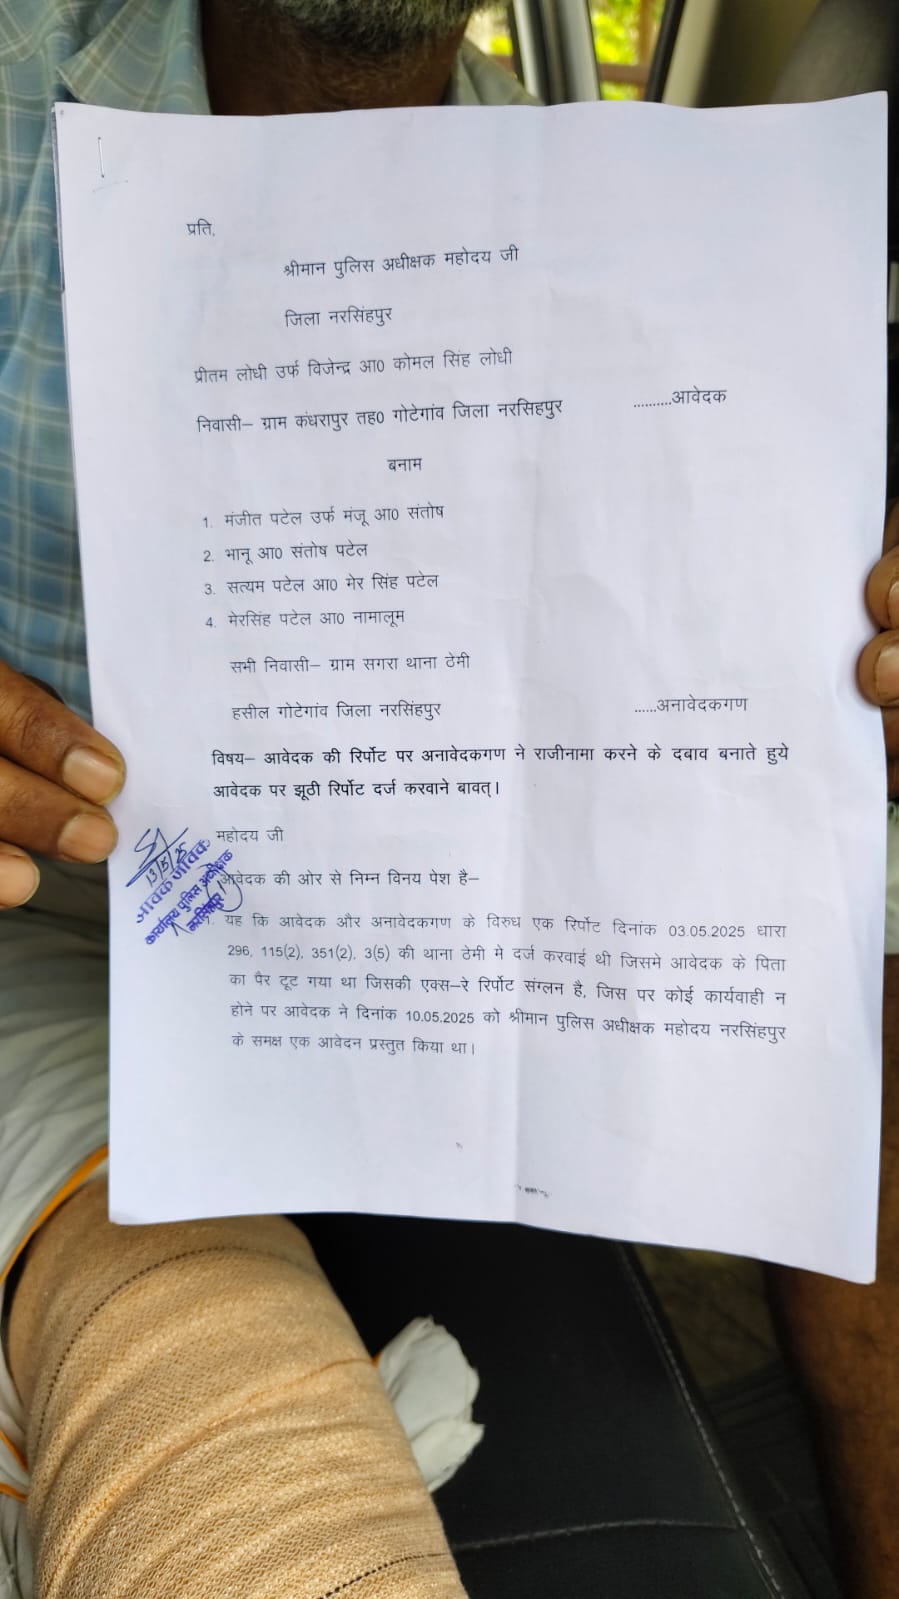 प्रति,
श्रीमान पुलिस अधीक्षक महोदय जी
जिला नरसिंहपुर
प्रीतम लोधी उर्फ विजेन्द्र आ0 कोमल सिंह लोधी
निवासी– ग्राम कंधरापुर तह0 गोटेगांव जिला नरसिहपुर ..........आवेदक
बनाम
1. मंजीत पटेल उर्फ मंजू आ0 संतोष
2. भानू आ0 संतोष पटेल
3. सत्यम पटेल आ0 मेर सिंह पटेल
4. मेरसिंह पटेल आ0 नामालूम
सभी निवासी– ग्राम सगरा थाना ठेमी
हसील गोटेगांव जिला नरसिंहपुर ......अनावेदकगण
विषय– आवेदक की रिर्पोट पर अनावेदकगण ने राजीनामा करने के दबाव बनाते हुये
आवेदक पर झूठी रिर्पोट दर्ज करवाने बावत्।
महोदय जी
आवेदक की ओर से निम्न विनय पेश है–
यह कि आवेदक और अनावेदकगण के विरुध एक रिर्पोट दिनांक 03.05.2025 धारा
296, 115(2), 351(2), 3(5) की थाना ठेमी मे दर्ज करवाई थी जिसमे आवेदक के पिता
का पैर टूट गया था जिसकी एक्स–रे रिर्पोट संग्लन है, जिस पर कोई कार्यवाही न
होने पर आवेदक ने दिनांक 10.05.2025 को श्रीमान पुलिस अधीक्षक महोदय नरसिंहपुर
के समक्ष एक आवेदन प्रस्तुत किया था।
13/5/25
आवक जावक
कार्यालय पुलिस अधीक्षक
नरसिंहपुर